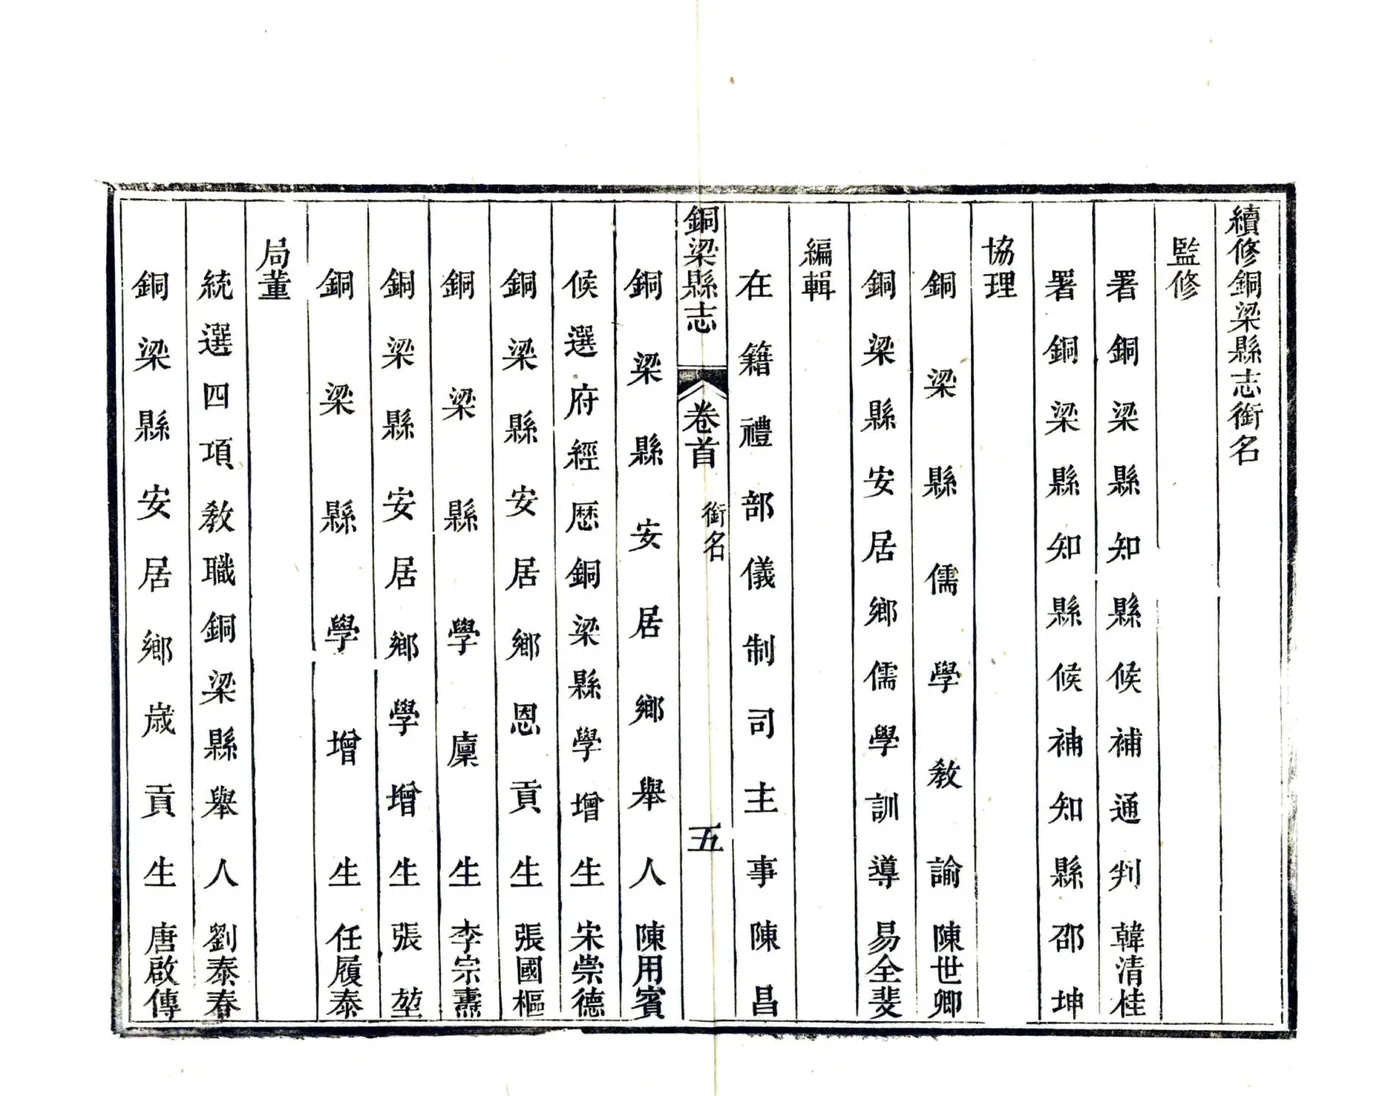 續修銅梁縣志銜名
監修
署銅梁縣知縣候補通判韓清桂
署銅梁縣知縣候補知縣邵坤
協理
銅梁縣儒學教諭陳世卿
銅梁縣安居鄉儒學訓導易全斐
編輯
在籍禮部儀制司主事陳昌
銅梁縣志
卷首
銜名
五
銅梁縣安居鄉舉人陳用賓
候選府經歷銅梁縣學增生宋崇德
銅梁縣安居鄉恩貢生張國樞
銅梁縣學廩生李宗燾
銅梁縣安居鄉學增生張堃
銅梁縣學增生任履泰
局董
統選四項教職銅梁縣舉人劉泰春
銅梁縣安居鄉歲貢生唐啟傳